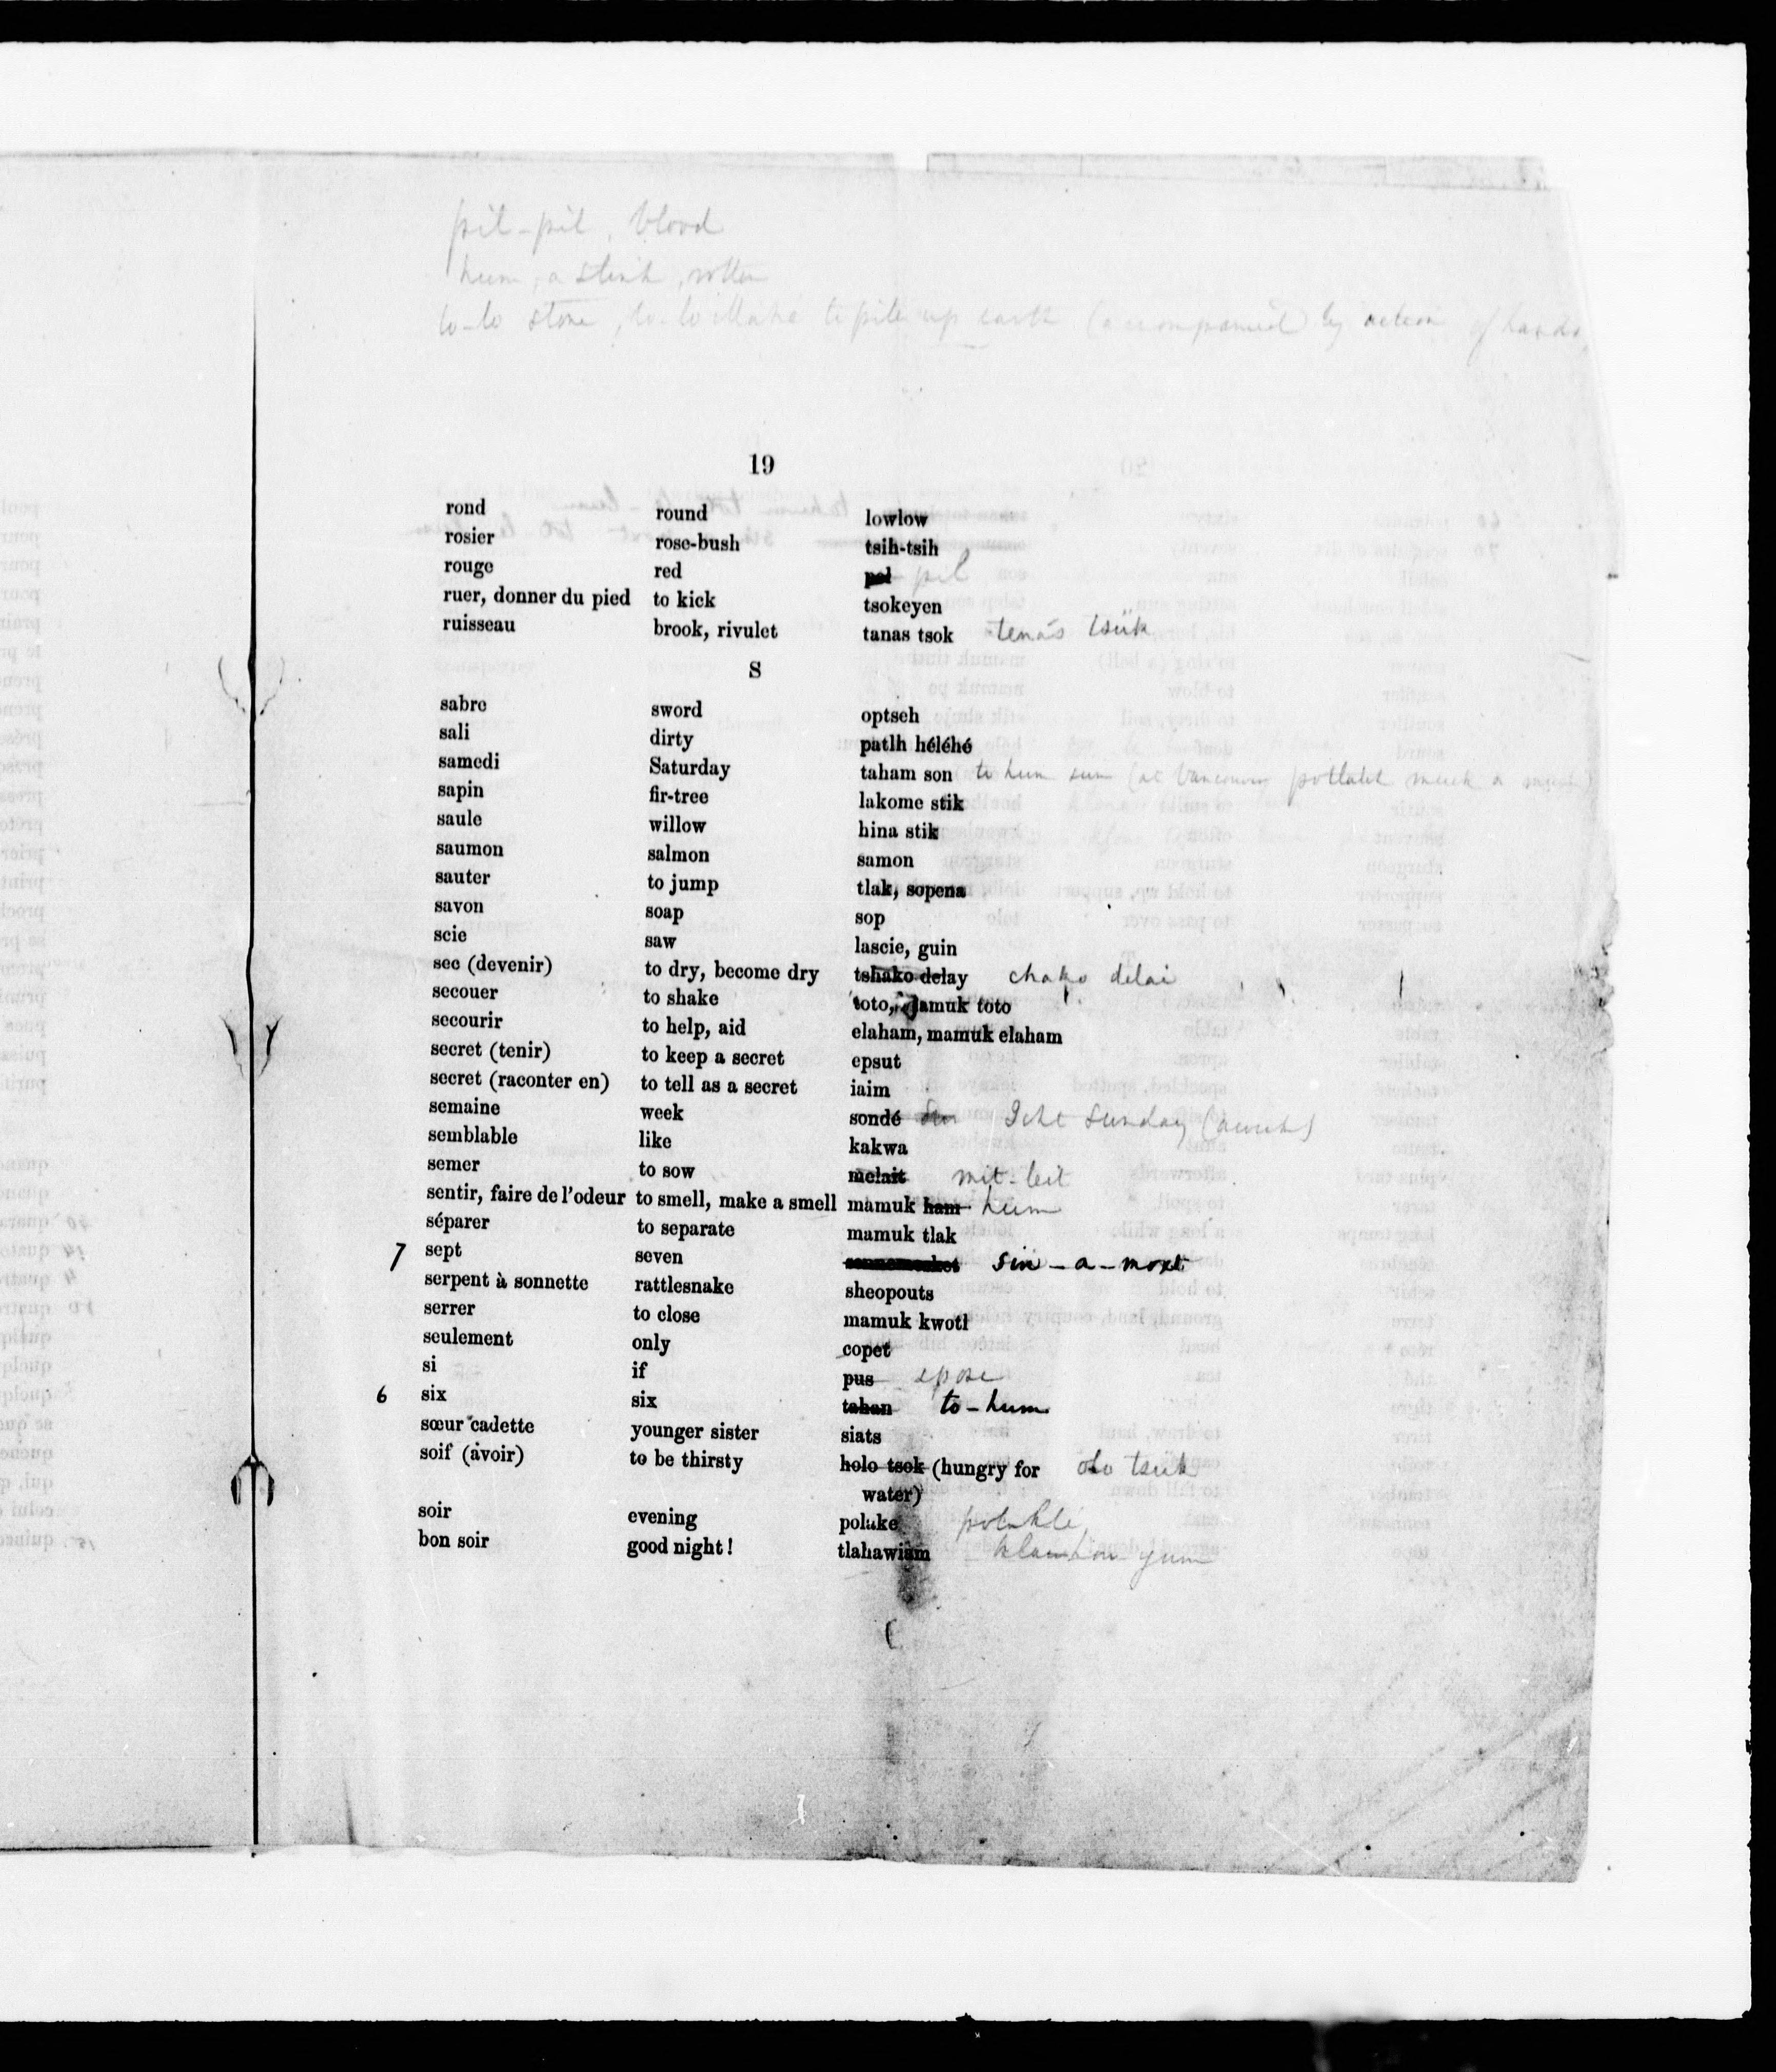 pil-pil, blood
hum, a stink, rotten
lo-lo stone, lo-lo illahé to pile up earth (accompanied) by action of hands
19
rond round lowlow
rosier rose-bush tsih-tsih
rouge red pel pil
ruer, donner du pied to kick tsokeyen
ruisseau brook, rivulet tanas tsok tenas tsük
S
sabre sword optseh
sali dirty patlh héléhé
samedi Saturday taham son to hum sun (at Vancouver potlatch muck a muck)
sapin fir-tree lakome stik
saule willow hina stik
saumon salmon samon
sauter to jump tlak, sopena
savon soap sop
scie saw lascie, guin
sec (devenir) to dry, become dry tshako delay chako delai
secouer to shake toto, mamuk toto
secourir to help, aid elaham, mamuk elaham
secret (tenir) to keep a secret epsut
secret (raconter en) to tell as a secret iaim
semaine week sondé Icht Sunday (a week)
semblable like kakwa
semer to sow melait mit-leit
sentir, faire de l'odeur to smell, make a smell mamuk ham hum
séparer to separate mamuk tlak
7 sept seven sin-a-moxt
serpent à sonnette rattlesnake sheopouts
serrer to close mamuk kwotl
seulement only copet
si if pus spose
6 six six tahan to-hum
sœur cadette younger sister siats
soif (avoir) to be thirsty holo tsok (hungry for olo tsük
water)
soir evening polake polaklé
bon soir good night! tlahawiam klahow yum